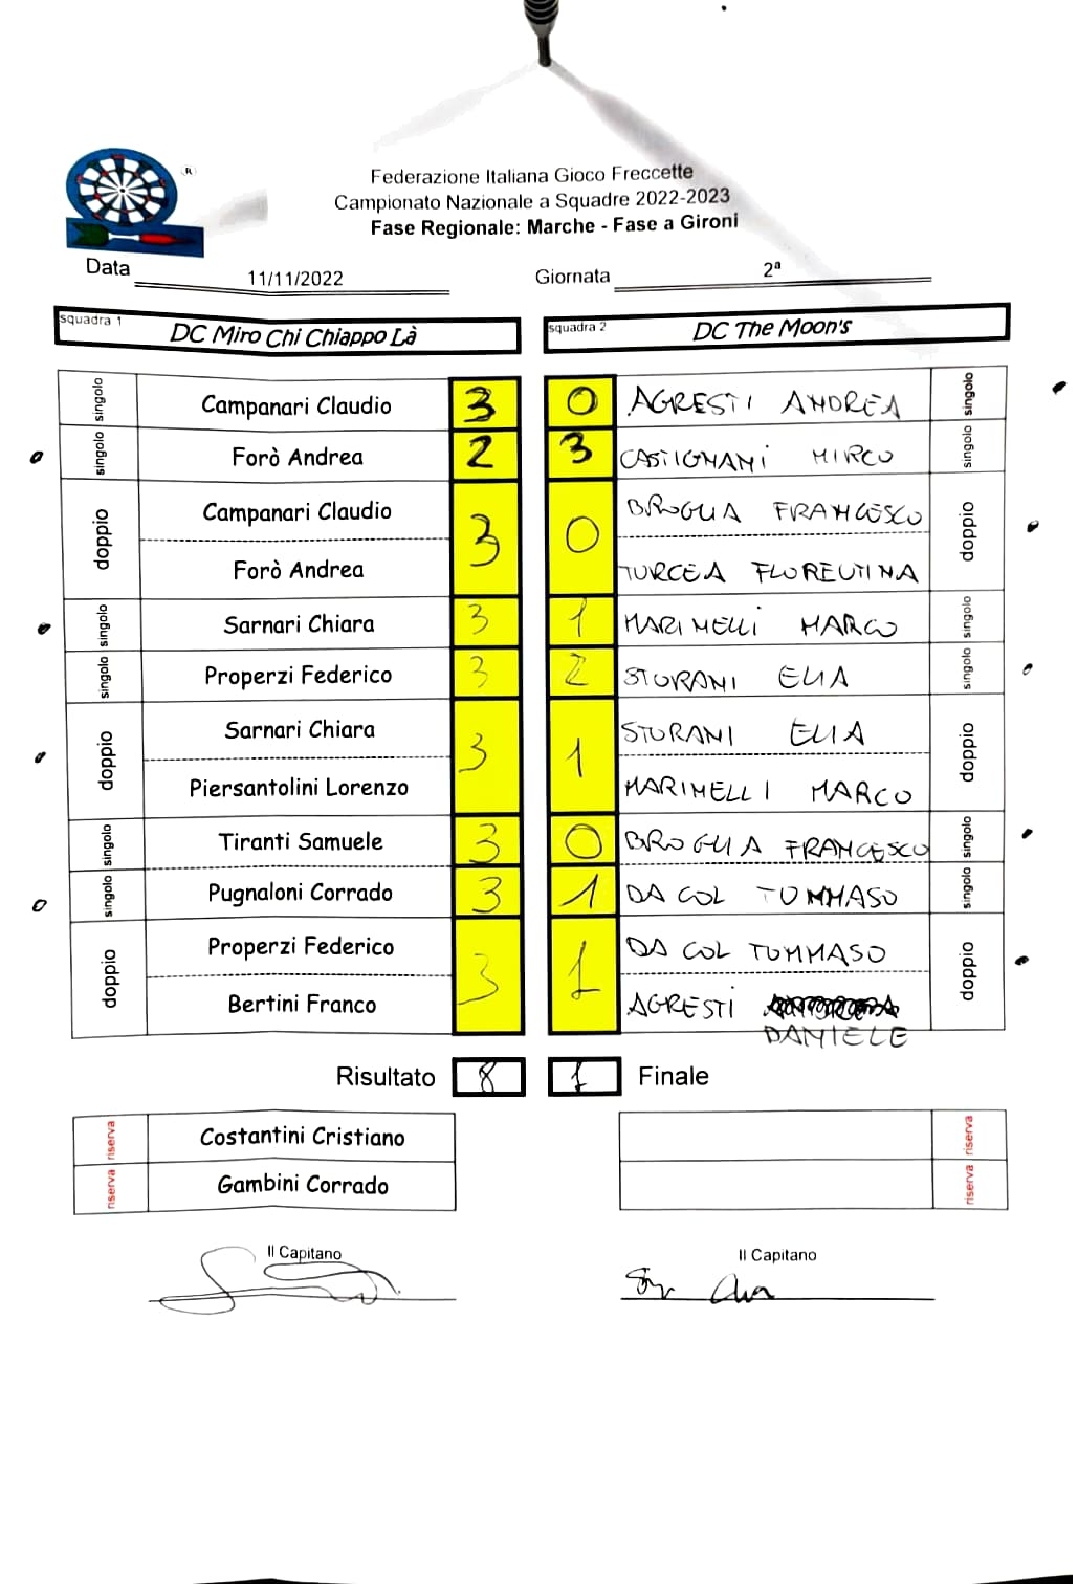 ®
Federazione Italiana Gioco Freccette
Campionato Nazionale a Squadre 2022-2023
Fase Regionale: Marche - Fase a Gironi
Data 11/11/2022 Giornata 2ª
squadra 1 DC Miro Chi Chiappo Là squadra 2 DC The Moon's
singolo Campanari Claudio 3 0 AGRESTI ANDREA singolo
singolo Forò Andrea 2 3 CASTIGNANI MIRCO singolo
doppio Campanari Claudio 3 0 BROGLIA FRANCESCO doppio
Forò Andrea TURCEA FLORENTINA
singolo Sarnari Chiara 3 1 MARINELLI MARCO singolo
singolo Properzi Federico 3 2 STURANI ELIA singolo
doppio Sarnari Chiara 3 1 STURANI ELIA doppio
Piersantolini Lorenzo MARINELLI MARCO
singolo Tiranti Samuele 3 0 BROGLIA FRANCESCO singolo
singolo Pugnaloni Corrado 3 1 DA COL TOMMASO singolo
doppio Properzi Federico 3 1 DA COL TOMMASO doppio
Bertini Franco AGRESTI
DANIELE
Risultato 8 1 Finale
riserva Costantini Cristiano riserva
riserva Gambini Corrado riserva
Il Capitano Il Capitano